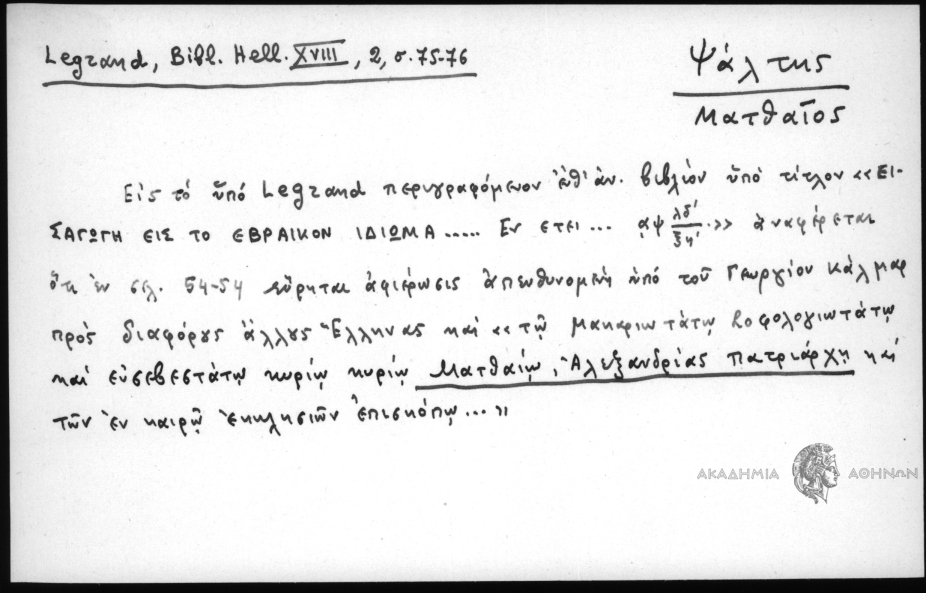 Legrand, Bibl. Hell. XVIII, 2, σ. 75-76
Ψάλτης
Ματθαῖος
Εἰς τό ὑπό Legrand περιγραφόμενον ὑπ' ἀρ. βιβλίον ὑπό τίτλον «ΕΙ-
ΣΑΓΩΓΗ ΕΙΣ ΤΟ ΕΒΡΑΙΚΟΝ ΙΔΙΩΜΑ ..... Εν ετει ... αψ λδ' ξη'.» ἀναφέρεται
ὅτι ἐν σελ. 54-54 εὕρηται ἀφιέρωσις ἀπευθυνομένη ὑπό τοῦ Γεωργίου Κάλμαρ
πρός διαφόρους ἄλλους Ἕλληνας καί «τῷ μακαριωτάτῳ σοφολογιωτάτῳ
καί εὐσεβεστάτῳ κυρίῳ κυρίῳ Ματθαίῳ, Ἀλεξανδρίας Πατριάρχῃ καί
τῶν ἐν καιρῷ ἐκκλησιῶν ἐπισκόπῳ...»
ΑΚΑΔΗΜΙΑ ΑΘΗΝΩΝ